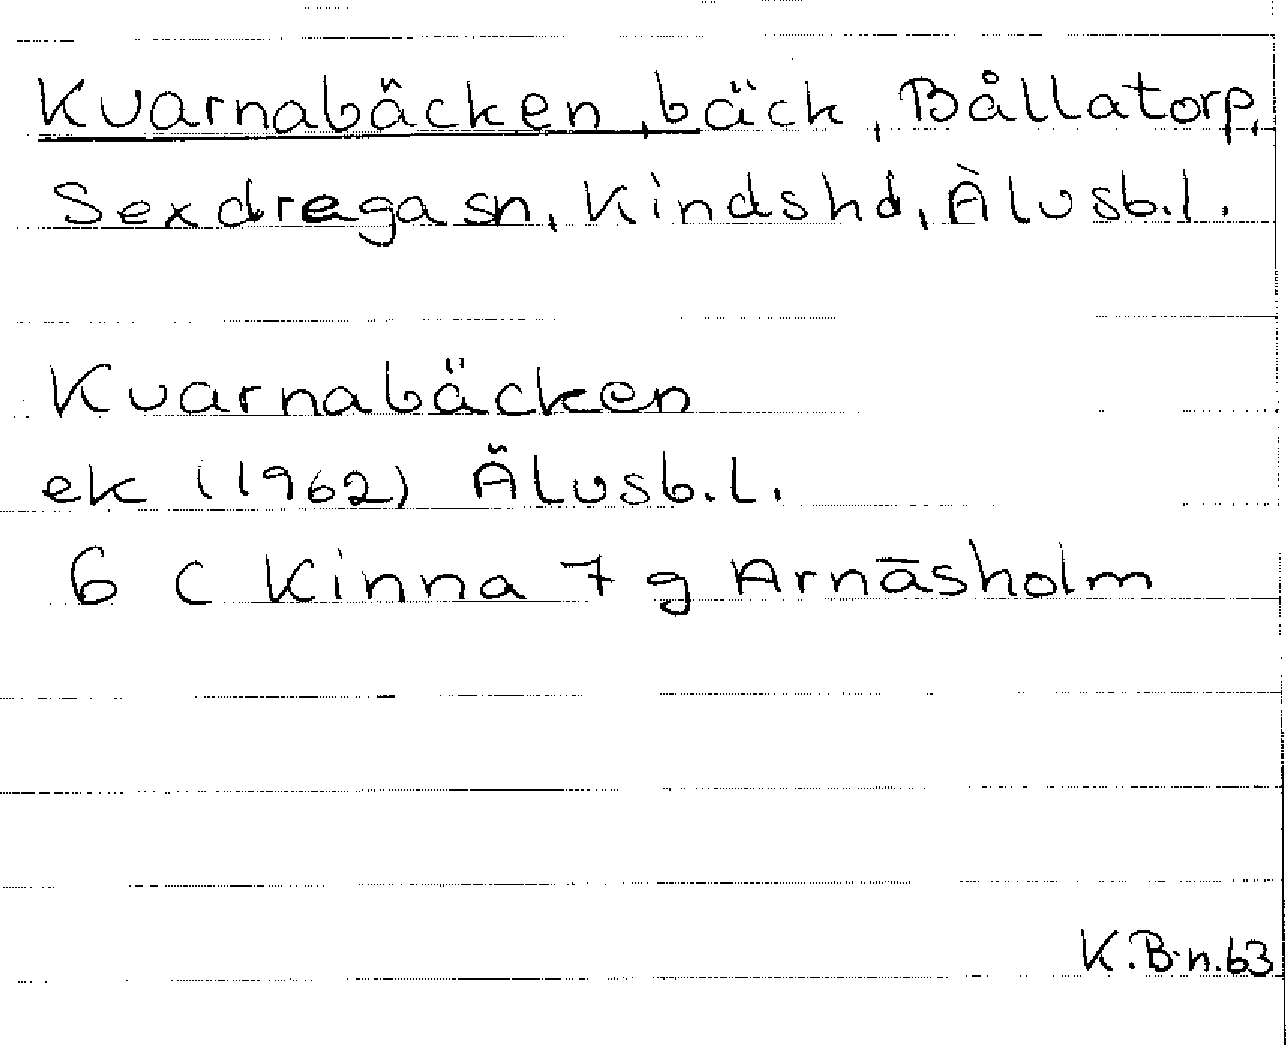 Kvarnabäcken, bäck, Bållatorp,
Sexdrega sn, Kinds hd, Älvsb.l.
Kvarnabäcken
ek (1962) Älvsb.l.
6 C Kinna 7 g Arnäsholm
K.B-n.63